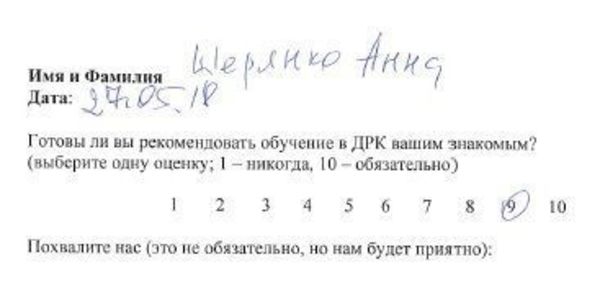 Имя и Фамилия Шерянко Анна
Дата: 27.05.18
Готовы ли вы рекомендовать обучение в ДРК вашим знакомым?
(выберите одну оценку; 1 – никогда, 10 – обязательно)
1 2 3 4 5 6 7 8 9 10
Похвалите нас (это не обязательно, но нам будет приятно):